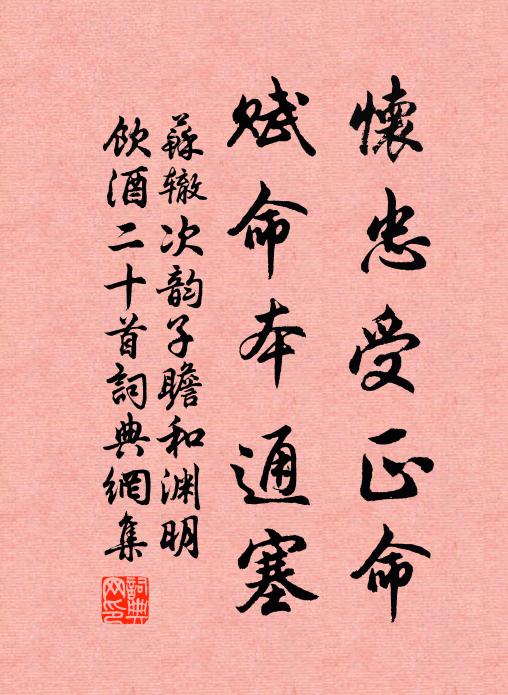 懷忠受正命
赋命本通塞
蘇辙次韵子瞻和渊明
飲酒二十首詞典網集
詞典網印